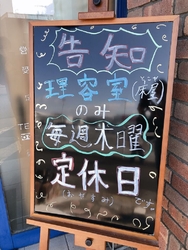 告知
理容室(床屋)
のみ
毎週木曜
定休日
(おやすみ) です